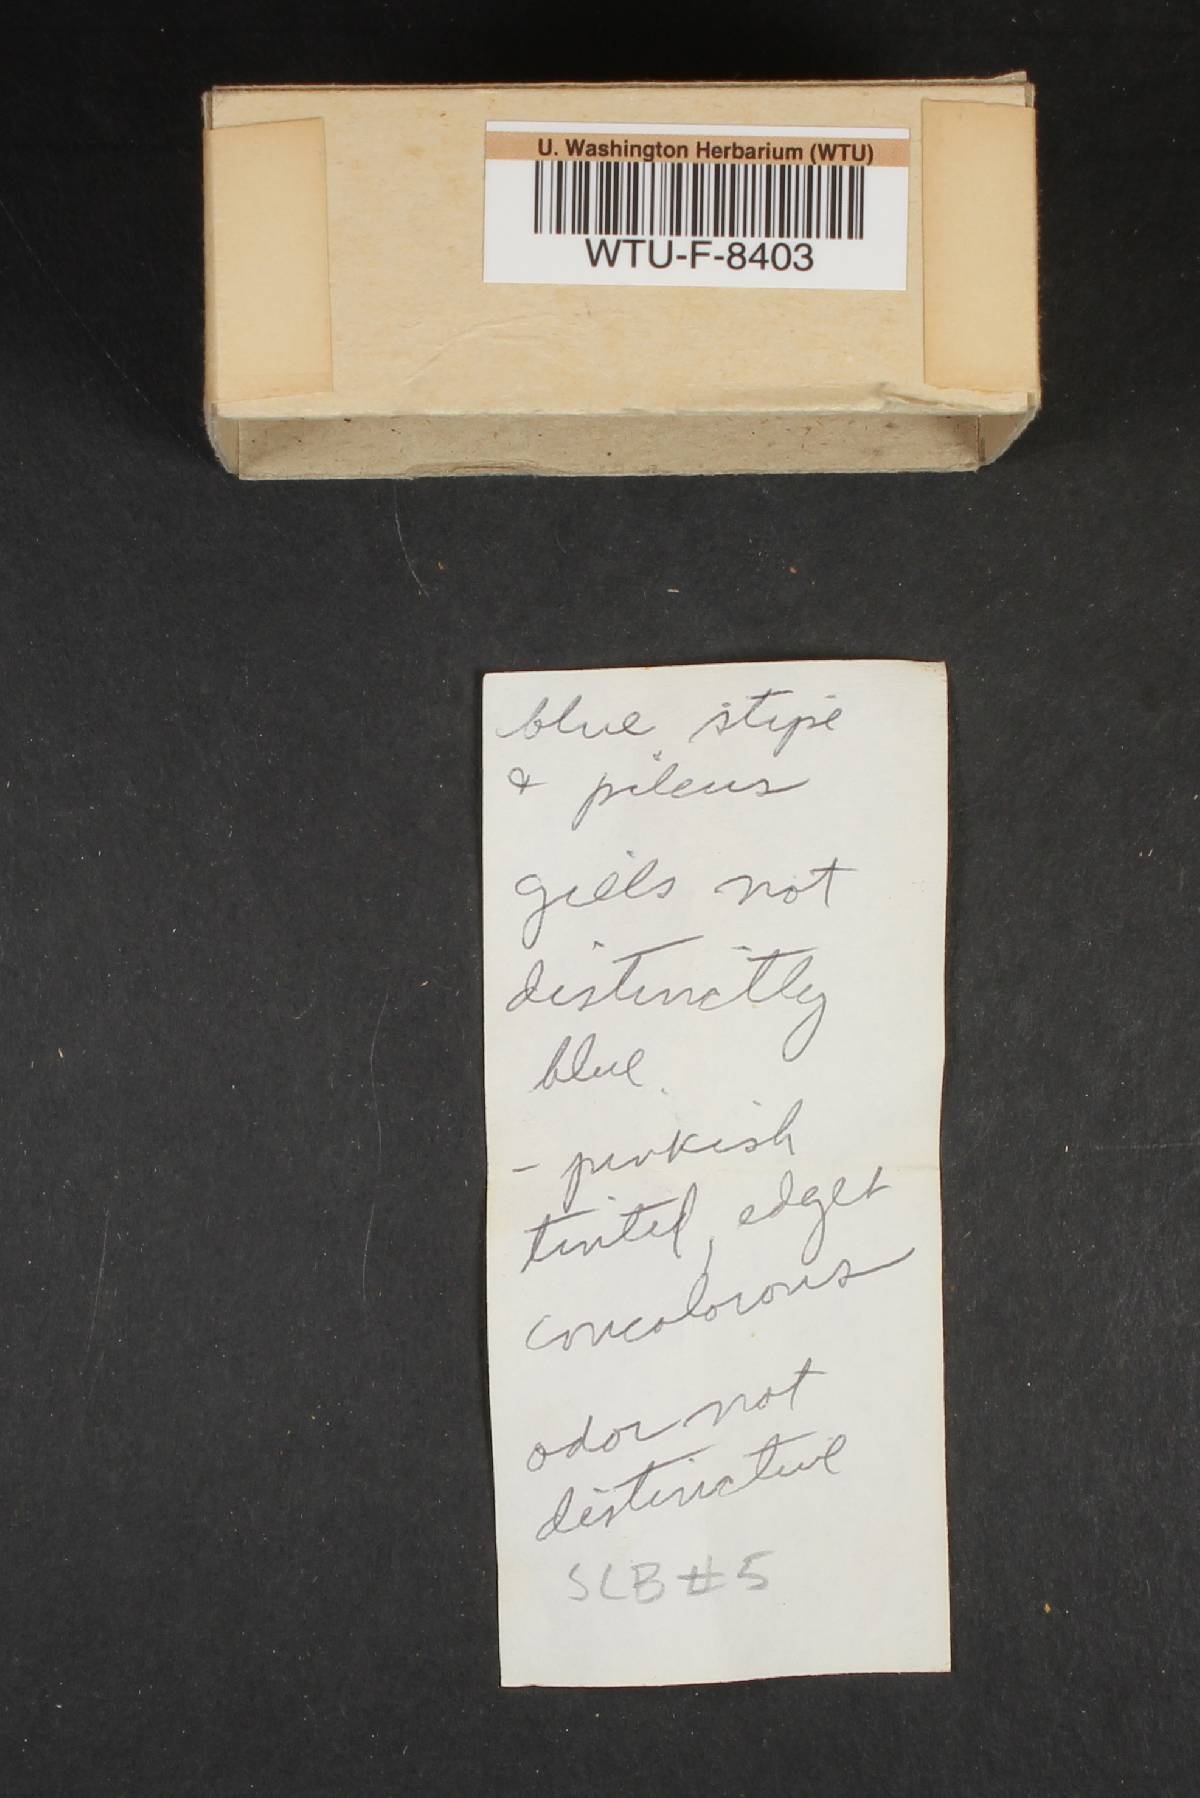 U. Washington Herbarium (WTU)
WTU-F-8403
blue stipe
& pileus
gills not
distinctly
blue
- pinkish
tinted, edges
concolorous
odor not
distinctive
SLB #5